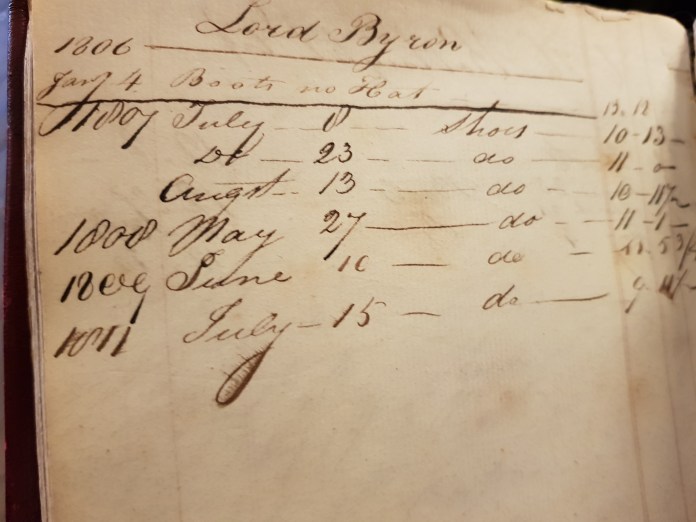 Lord Byron
1806
Jany 4 Boots no Hat 13. 12
1807 July 8 Shoes 10-13-
Do 23 do 11-0-
Augst 13 do 10-
1808 May 27 do 11-1-
1809 June 10 do
1811 July 15 do 9-